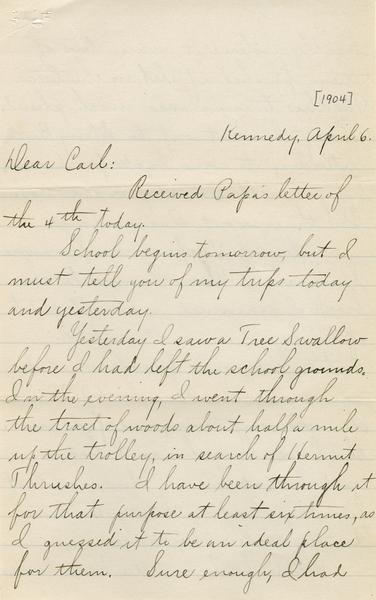 [1904]
Kennedy, April 6.
Dear Carl:
Received Papa's letter of
the 4th today.
School begins tomorrow, but I
must tell you of my trips today
and yesterday.
Yesterday I saw a Tree Swallow
before I had left the school grounds.
In the evening, I went through
the tract of woods about half a mile
up the trolley, in search of Hermit
Thrushes. I have been through it
for that purpose at least six times, as
I guessed it to be an ideal place
for them. Sure enough, I had